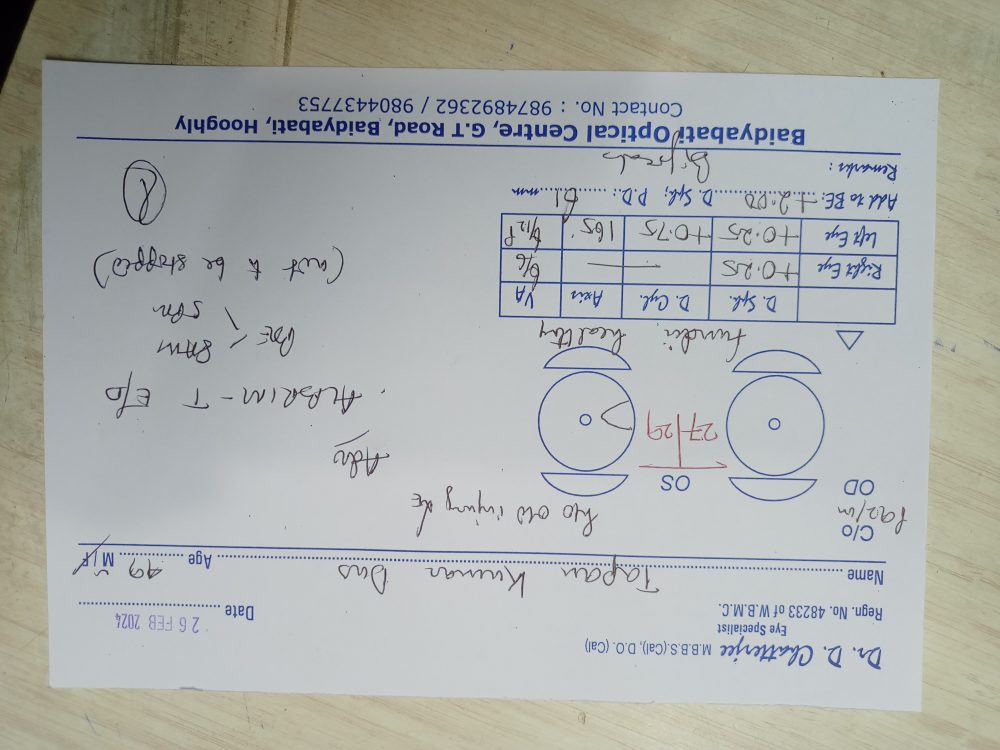 Dr. D. Chatterjee M.B.B.S.(Cal), D.O. (Cal)
Eye Specialist
Regn. No. 48233 of W.B.M.C.
Date 26 FEB 2024
Name Tapan Kumar Das Age 49 M/F
C/o
OD
OS
h/o old injury LE
27 29
Adv
ALBRIM-T E/D
BE 8AM
8PM
(not to be stopped)
fundii healthy
D. Sph. D. Cyl. Axis VA
Right Eye +0.25 — 6/6
Left Eye +0.25 +0.75 165° 6/12P
Add to BE: +2.00 D. Sph; P.D.: 61 mm
Remarks: Bifocals
Baidyabati Optical Centre, G.T Road, Baidyabati, Hooghly
Contact No. : 9874892362 / 9804437753